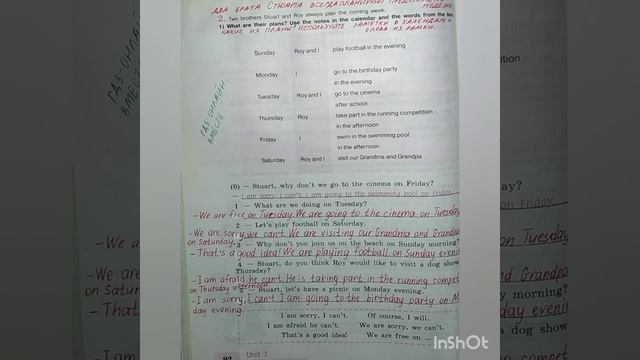 ДВА БРАТА СТЮАРТ И
2. Two brothers Stuart and Roy always plan the coming week.
1) What are their plans? Use the notes in the calendar and the words from the box.
КАКИЕ ИХ ПЛАНЫ? ИСПОЛЬЗУЙТЕ ЗАМЕТКИ В КАЛЕНДАРЕ И
СЛОВА ИЗ РАМКИ.
Sunday Roy and I play football in the evening
Monday I go to the birthday party
in the evening
Tuesday Roy and I go to the cinema
after school
Thursday Roy take part in the running competition
in the afternoon
Friday I swim in the swimming pool
in the afternoon
Saturday Roy and I visit our Grandma and Grandpa
ГДЗ ОНЛАЙН
ВМЕСТЕ
(0) — Stuart, why don't we go to the cinema on Friday?
— I am sorry, I can't. I am going to the swimming pool on Friday.
1 — What are we doing on Tuesday?
- We are free on Tuesday. We are going to the cinema on Tuesday
2 — Let's play football on Saturday.
- We are sorry, we can't. We are visiting our Grandma and Grandpa
on Saturday.
3 — Why don't you join us on the beach on Sunday morning?
- That's a good idea! We are playing football on Sunday eveni
4 — Stuart, do you think Roy would like to visit a dog show
Thursday?
- I am afraid he can't. He is taking part in the running compet
on Thursday afternoon.
5 — Stuart, let's have a picnic on Monday evening.
- I am sorry, I can't. I am going to the birthday party on M
day evening.
I am sorry, I can't. Of course, I will.
I am afraid he can't. We are sorry, we can't.
That's a good idea! We are free on ...
92 Unit 7
InShOt